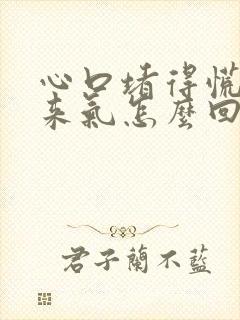 心口堵得慌
来氣怎麼回
君子蘭不藍